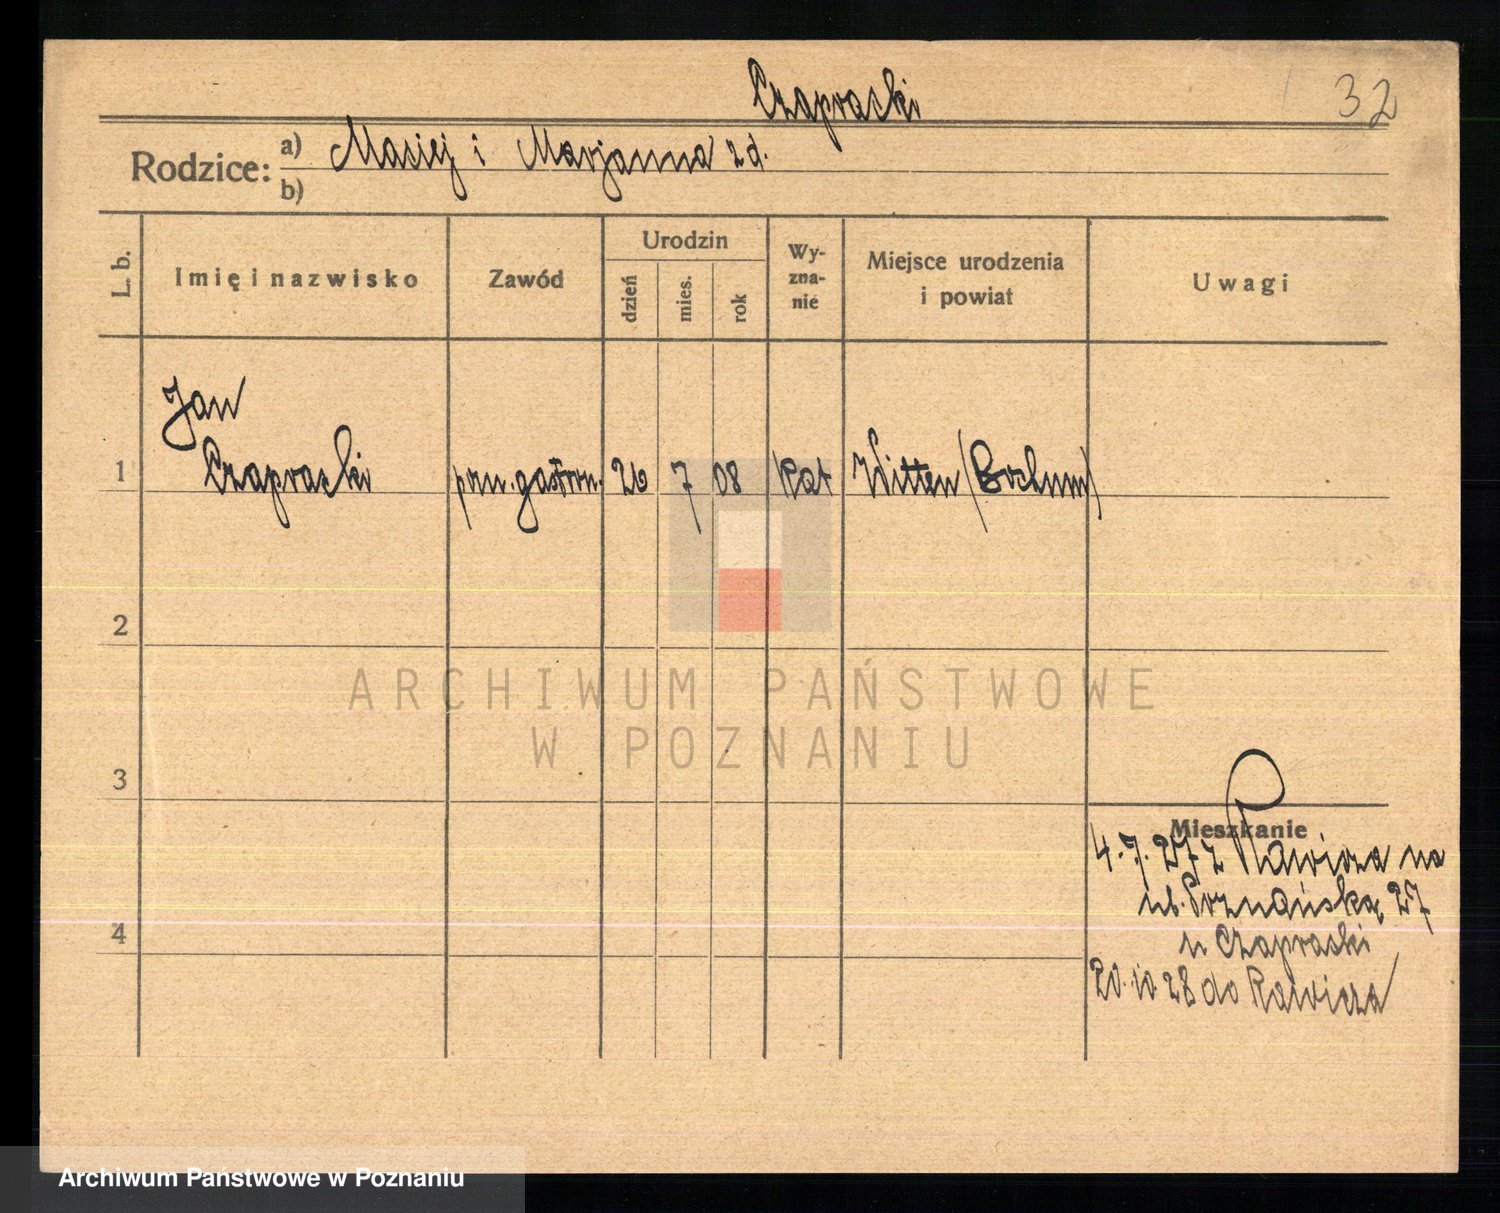 Czapracki
32
Rodzice: a) Maciej i Marjanna zd.
b)
L. b. Imię i nazwisko Zawód Urodzin dzień mies. rok Wyznanie Miejsce urodzenia i powiat Uwagi
Jan
1 Czapracki gastron. 26 7 08 Kat Witten (Bochum)
2
ARCHIWUM PAŃSTWOWE
W POZNANIU
3
Mieszkanie
4.7.27 z Rawicza na
ul. Poznańską 27
4
u Czapraski
20.10.28 do Rawicza
Archiwum Państwowe w Poznaniu